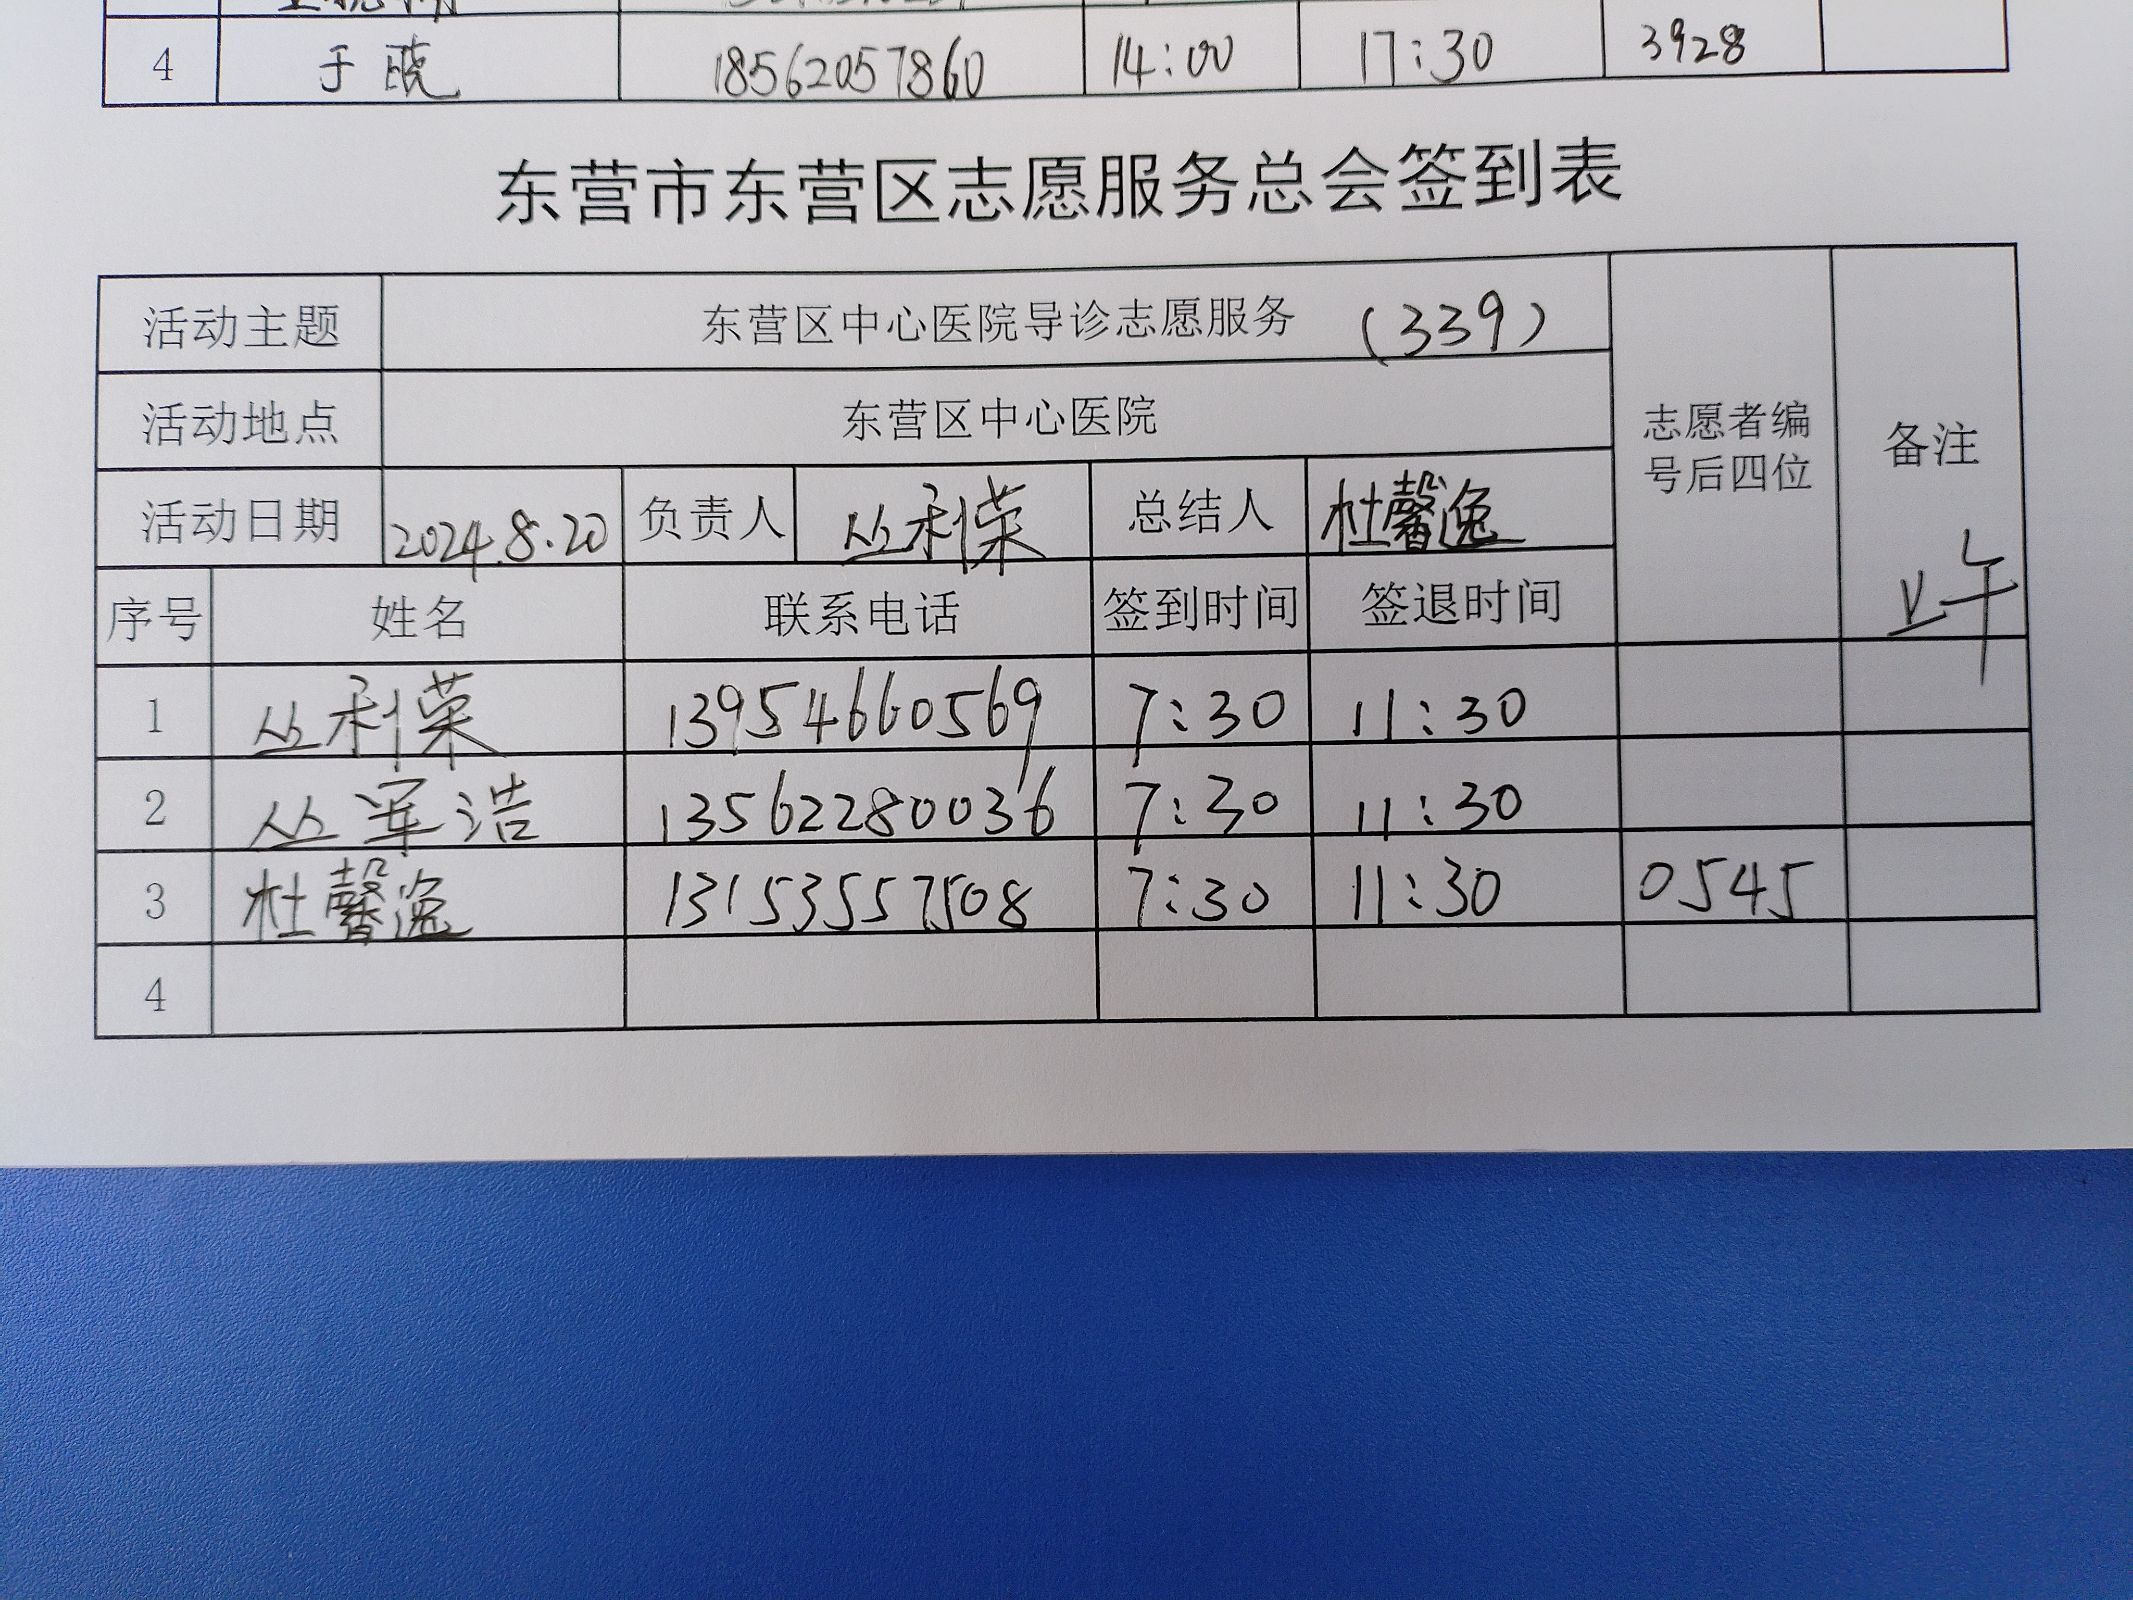 4 于晓 18562057860 14:00 17:30 3928
东营市东营区志愿服务总会签到表
活动主题 东营区中心医院导诊志愿服务 (339)
活动地点 东营区中心医院
志愿者编号后四位 备注
活动日期 2024.8.20 负责人 丛利荣 总结人 杜馨逸
上午
序号 姓名 联系电话 签到时间 签退时间
1 丛利荣 13954660569 7:30 11:30
2 丛军浩 13562280036 7:30 11:30
3 杜馨逸 13153557508 7:30 11:30 0545
4